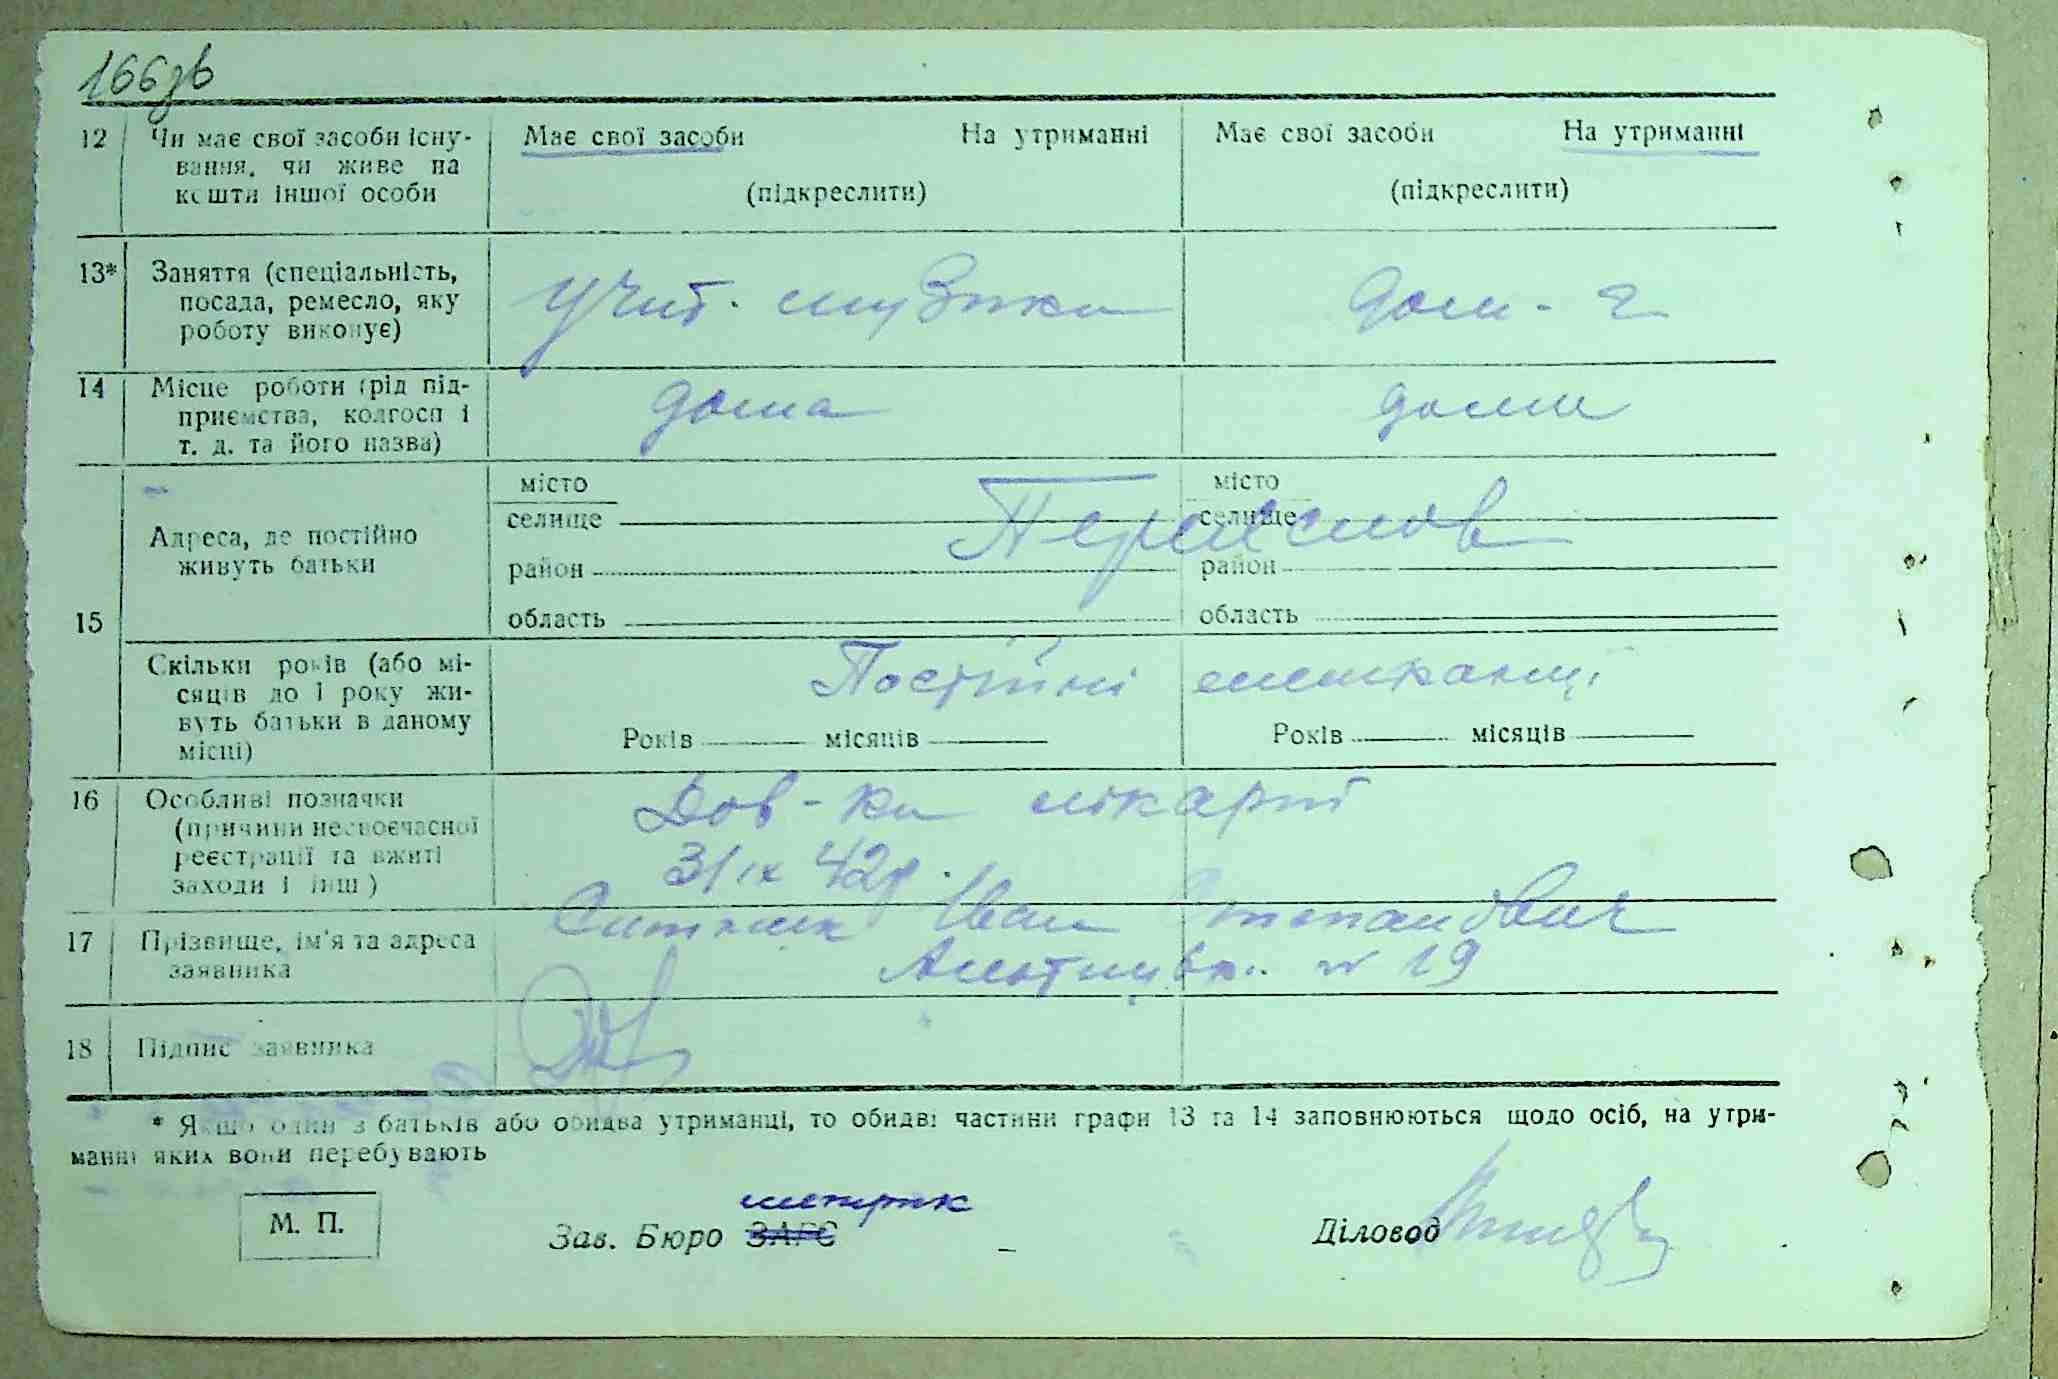 166зв
12 Чи має свої засоби існу-
вання, чи живе на
кошти іншої особи
Має свої засоби На утриманні
(підкреслити)
Має свої засоби На утриманні
(підкреслити)
13* Заняття (спеціальність,
посада, ремесло, яку
роботу виконує)
учит. музики
дом-г
14 Місце роботи (рід під-
приємства, колгосп і
т. д. та його назва)
дома
дома
15
Адреса, де постійно
живуть батьки
місто
селище
район
область
місто
селище
район
область
Переяслов
Скільки років (або мі-
сяців до 1 року жи-
вуть батьки в даному
місці)
Постійні мешканці
Років місяців
Років місяців
16 Особливі позначки
(причини несвоєчасної
реєстрації та вжиті
заходи і інш)
Дов-ка лікаря
31 ІХ 42р.
17 Прізвище, ім'я та адреса
заявника
Іван Степанович
№ 19
18 Підпис заявника
* Якщо один з батьків або обидва утриманці, то обидві частини графи 13 та 14 заповнюються щодо осіб, на утри-
манні яких вони перебувають
М. П.
метрик
Зав. Бюро ЗАГС
Діловод